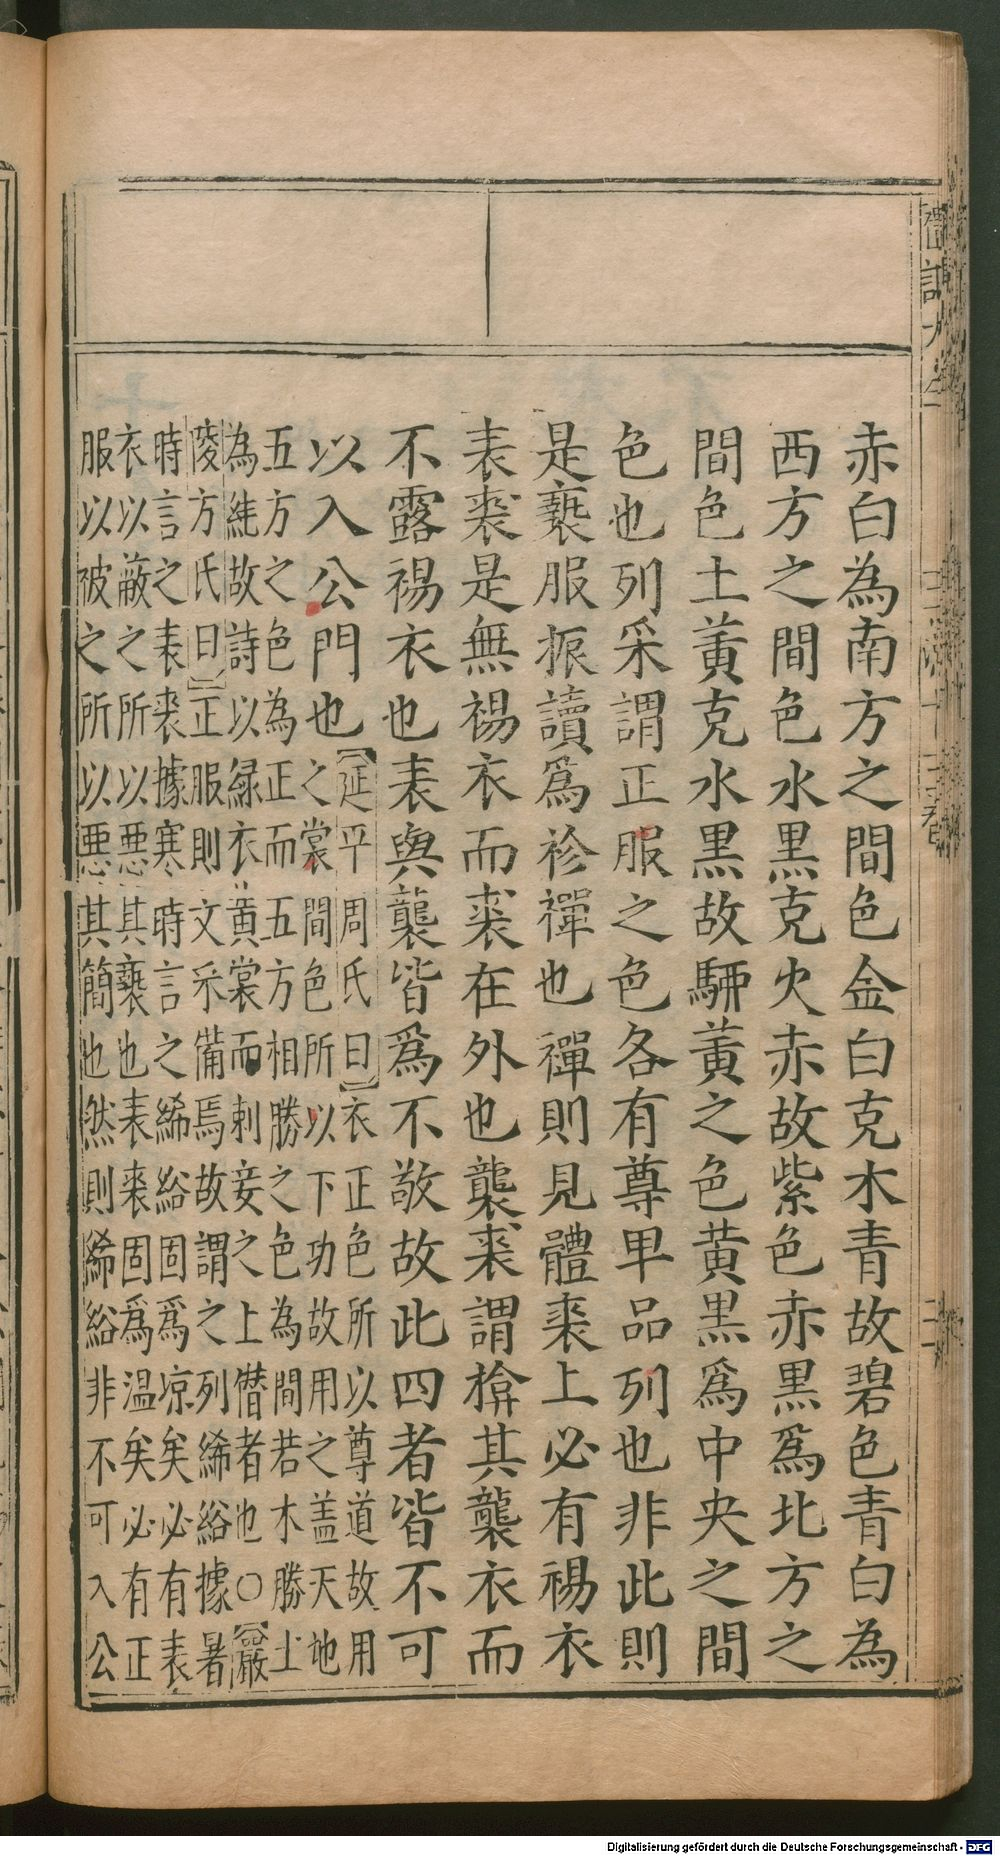 赤白為南方之間色金白克木青故碧色青白為
西方之間色水黒克火赤故紫色赤黒爲北方之
間色土黃克水黒故駵黃之色黃黒爲中央之間
色也列采謂正服之色各有尊卑品列也非此則
是褻服振讀爲袗襌也襌則見體裘上必有裼衣
表裘是無裼衣而裘在外也襲裘謂揜其襲衣而
不露裼衣也表與襲皆爲不敬故此四者皆不可
以入公門也
【延平周氏曰】衣正色所以尊道故用
之裳間色所以下功故用之盖天地
五方之色為正而五方相勝之色為間若木勝土
為紌故詩以緑衣黃裳而刺妾之上僣者也○【嚴
陵方氏曰】正服則文采備焉故謂之列絺綌據暑
時言之表裘據寒時言之絺綌固爲凉矣必有表
衣以蔽之所以惡其褻也表裘固爲温矣必有正
服以被之所以惡其簡也然則絺綌非不可入公
Digitalisierung gefördert durch die Deutsche Forschungsgemeinschaft - DFG